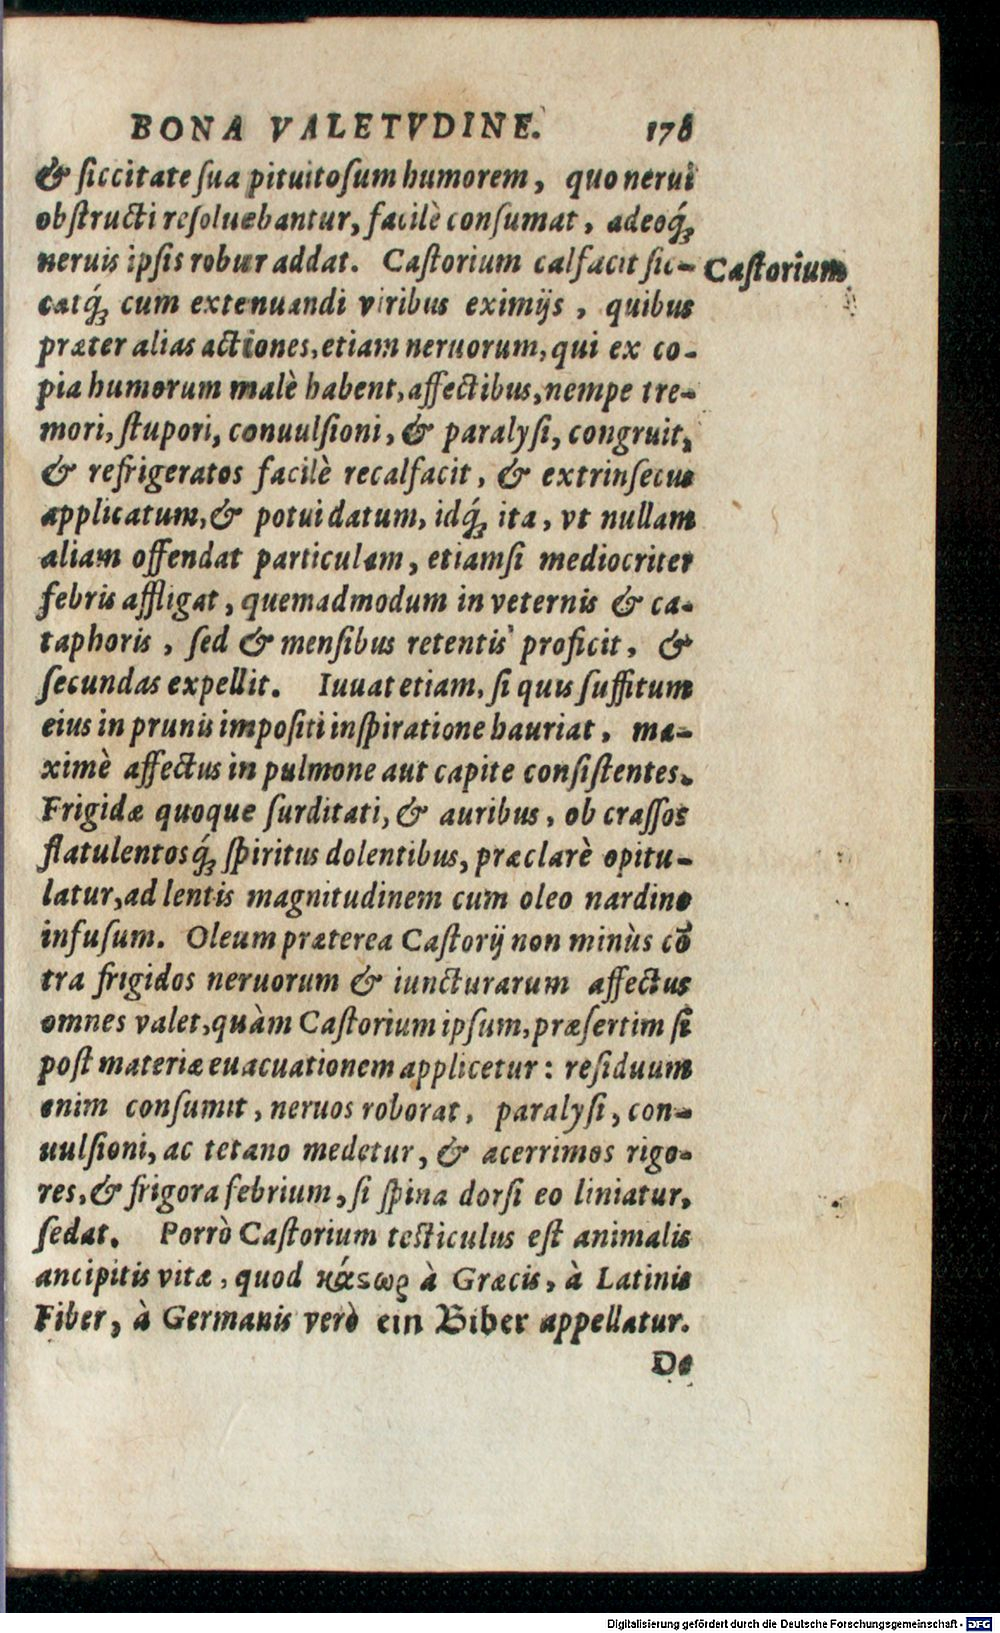 BONA VALETVDINE. 178
& ſiccitate ſua pituitoſum humorem, quo nerui
obſtructi reſoluebantur, facilè conſumat, adeoq́ꝫ
neruis ipſis robur addat. Caſtorium calfacit ſic-
Caſtorium.
catq́ꝫ cum extenuandi viribus eximijs, quibus
præter alias actiones, etiam neruorum, qui ex co-
pia humorum malè habent, affectibus, nempe tre-
mori, ſtupori, conuulſioni, & paralyſi, congruit,
& refrigeratos facilè recalfacit, & extrinſecus
applicatum, & potui datum, idq́ꝫ ita, vt nullam
aliam offendat particulam, etiamſi mediocriter
febris affligat, quemadmodum in veternis & ca-
taphoris, ſed & menſibus retentis proficit, &
ſecundas expellit. Iuuat etiam, ſi quis ſuffitum
eius in prunis impoſiti inſpiratione hauriat, ma-
ximè affectus in pulmone aut capite conſiſtentes.
Frigidæ quoque ſurditati, & auribus, ob craſſos
flatulentosq́ꝫ ſpiritus dolentibus, præclarè opitu-
latur, ad lentis magnitudinem cum oleo nardino
infuſum. Oleum præterea Caſtorij non minùs cō
tra frigidos neruorum & iuncturarum affectus
omnes valet, quàm Caſtorium ipſum, præſertim ſi
poſt materiæ euacuationem applicetur: reſiduum
enim conſumit, neruos roborat, paralyſi, con-
uulſioni, ac tetano medetur, & acerrimos rigo-
res, & frigora febrium, ſi ſpina dorſi eo liniatur,
ſedat. Porrò Caſtorium teſticulus eſt animalis
ancipitis vitæ, quod κάϛωρ à Græcis, à Latinis
Fiber, à Germanis verò ein Biber appellatur.
De
Digitalisierung gefördert durch die Deutsche Forschungsgemeinschaft - DFG